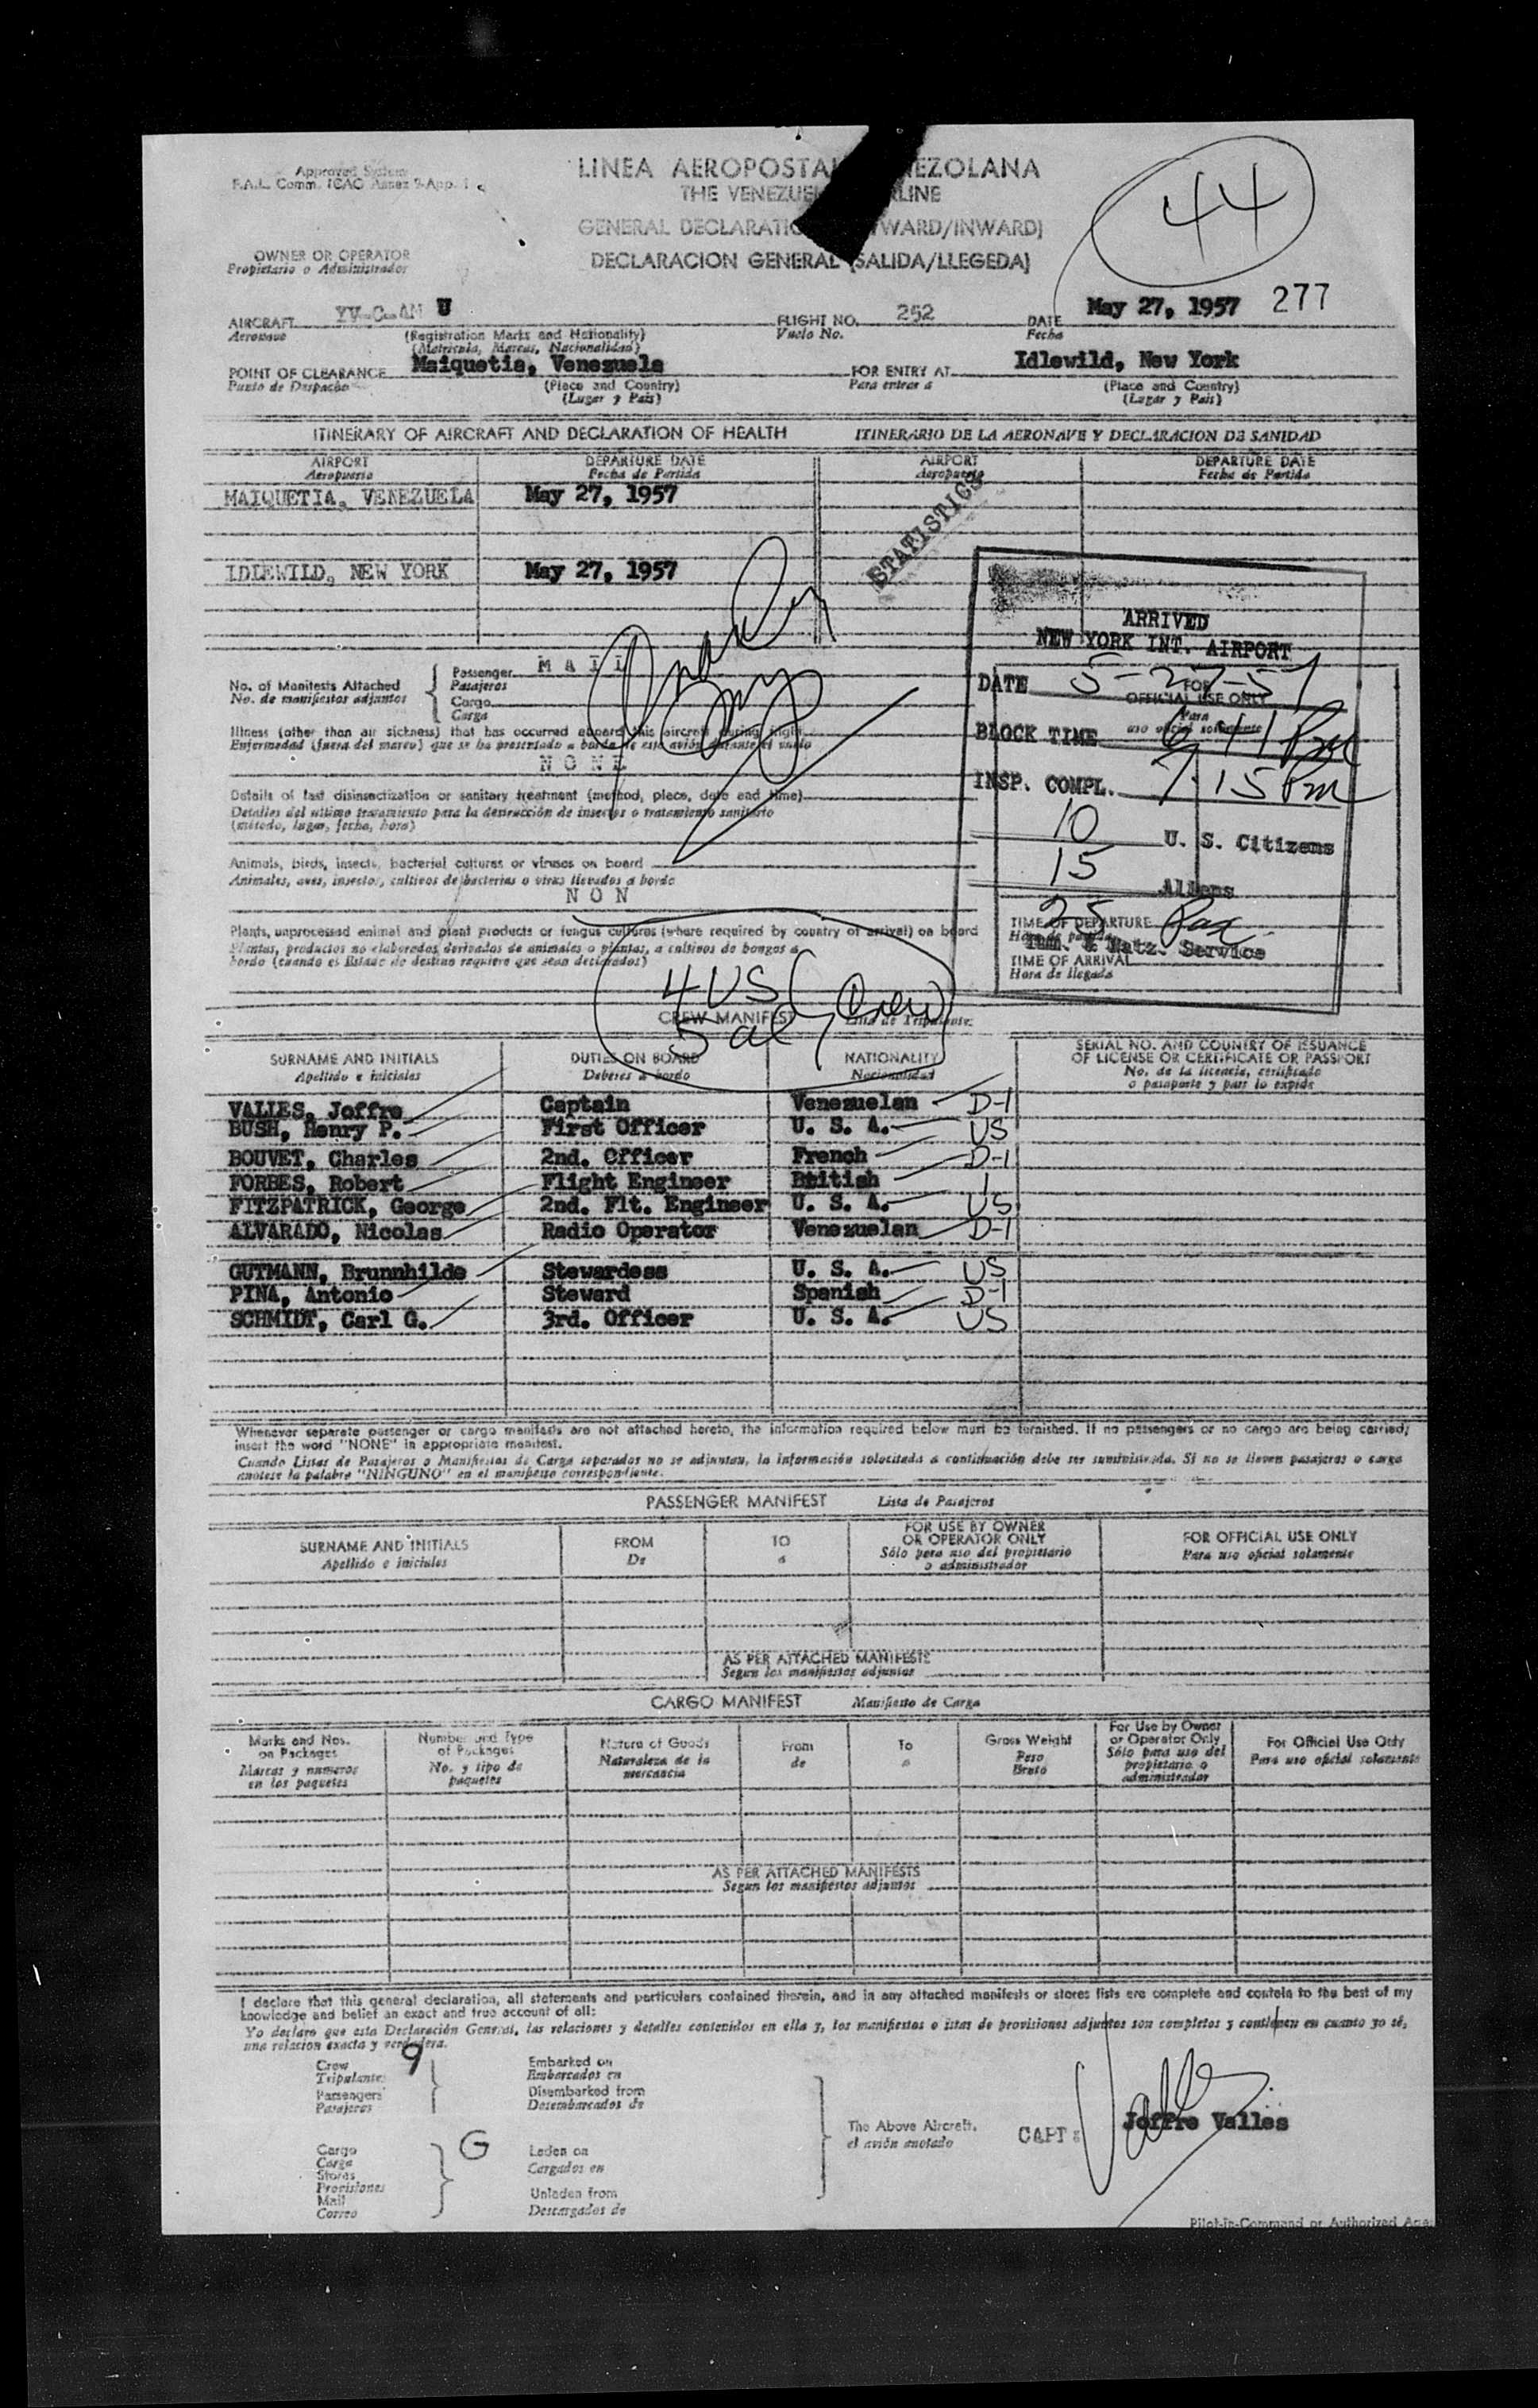 Approved System
F.A.L. Comm. ICAO Annex 9-App. 1
LINEA AEROPOSTAL VENEZOLANA
THE VENEZUELAN AIRLINE
GENERAL DECLARATION (OUTWARD/INWARD)
DECLARACION GENERAL (SALIDA/LLEGEDA)
44
OWNER OR OPERATOR
Propietario o Administrador
AIRCRAFT YV-C-AM U FLIGHT NO. 252 DATE May 27, 1957 277
Aeronave (Registration Marks and Nationality) Vuelo No. Fecha
(Matricula, Marcas, Nacionalidad)
POINT OF CLEARANCE Maiquetia, Venezuela FOR ENTRY AT Idlewild, New York
Punto de Despacho (Place and Country) Para entrar a (Place and Country)
(Lugar y Pais) (Lugar y Pais)
ITINERARY OF AIRCRAFT AND DECLARATION OF HEALTH ITINERARIO DE LA AERONAVE Y DECLARACION DE SANIDAD
AIRPORT DEPARTURE DATE AIRPORT DEPARTURE DATE
Aeropuerto Fecha de Partida Aeropuerto Fecha de Partida
MAIQUETIA, VENEZUELA May 27, 1957
STATISTICS
IDLEWILD, NEW YORK May 27, 1957
ARRIVED
NEW YORK INT. AIRPORT
DATE 5-27-57
FOR OFFICIAL USE ONLY
Para uso oficial solamente
BLOCK TIME 6 41 Pm
INSP. COMPL. 7 15 Pm
10 U. S. Citizens
15 Aliens
25 Pax
TIME OF DEPARTURE
Imm. & Natz. Service
TIME OF ARRIVAL
Hora de llegada
No. of Manifests Attached
No. de manifiestos adjuntos
Passenger M A I L
Pasajeros
Cargo
Carga
Illness (other than air sickness) that has occurred aboard this aircraft during flight
Enfermedad (fuera del mareo) que se ha presentado a bordo de este avión durante el vuelo
N O N E
Details of last disinsectization or sanitary treatment (method, place, date and time)
Detalles del ultimo tratamiento para la destrucción de insectos o tratamiento sanitario
(método, lugar, fecha, hora)
Animals, birds, insects, bacterial cultures or viruses on board
Animales, aves, insectos, cultivos de bacterias o virus llevados a bordo
N O N
Plants, unprocessed animal and plant products or fungus cultures (where required by country of arrival) on board
Plantas, productos no elaborados derivados de animales o plantas, a cultivos de hongos a
bordo (cuando el Estado de destino requiere que sean declarados)
4 US
5 al
Crew
CREW MANIFEST Lista de Tripulante
SURNAME AND INITIALS DUTIES ON BOARD NATIONALITY SERIAL NO. AND COUNTRY OF ISSUANCE
OF LICENSE OR CERTIFICATE OR PASSPORT
Apellido e iniciales Deberes a bordo Nacionalidad No. de la licencia, certificado
o pasaporte y pais lo expide
VALLES, Joffre Captain Venezuelan D-1
BUSH, Henry P. First Officer U. S. A. US
BOUVET, Charles 2nd. Officer French D-1
FORBES, Robert Flight Engineer British 1
FITZPATRICK, George 2nd. Flt. Engineer U. S. A. US
ALVARADO, Nicolas Radio Operator Venezuelan D-1
GUTMANN, Brunnhilde Stewardess U. S. A. US
PINA, Antonio Steward Spanish D-1
SCHMIDT, Carl G. 3rd. Officer U. S. A. US
Whenever separate passenger or cargo manifests are not attached hereto, the information required below must be furnished. If no passengers or no cargo are being carried,
insert the word "NONE" in appropriate manifest.
Cuando Listas de Pasajeros o Manifiestos de Carga separados no se adjuntan, la información solocitada a continuación debe ser suministrada. Si no se lleven pasajeros o carga
anotese la palabra "NINGUNO" en el manifiesto correspondiente.
PASSENGER MANIFEST Lista de Pasajeros
SURNAME AND INITIALS FROM TO FOR USE BY OWNER
OR OPERATOR ONLY FOR OFFICIAL USE ONLY
Apellido e iniciales De a Sólo para uso del propietario
o administrador Para uso oficial solamente
AS PER ATTACHED MANIFESTS
Segun los manifiestos adjuntos
CARGO MANIFEST Manifiesto de Carga
Marks and Nos.
on Packages
Marcas y numeros
en los paquetes
Number and Type
of Packages
No. y tipo de
paquetes
Nature of Goods
Naturaleza de la
mercancia
From
de
To
a
Gross Weight
Peso
Bruto
For Use by Owner
or Operator Only
Sólo para uso del
propietario o
administrador
For Official Use Only
Para uso oficial solamente
AS PER ATTACHED MANIFESTS
Segun los manifiestos adjuntos
I declare that this general declaration, all statements and particulars contained therein, and in any attached manifests or stores lists are complete and contain to the best of my
knowledge and belief an exact and true account of all:
Yo declaro que esta Declaración General, las relaciones y detalles contenidos en ella y, los manifiestos o listas de provisiones adjuntos son completos y contienen en cuanto yo sé,
una relacion exacta y verdadera.
Crew 9
Tripulante
Passengers
Pasajeros
Embarked on
Embarcados en
Disembarked from
Desembarcados de
Cargo
Carga
Stores
Provisiones
Mail
Correo
G
Laden on
Cargados en
Unladen from
Descargados de
The Above Aircraft.
el avión anotado
CAPT: Joffre Valles
Valles
Pilot-in-Command or Authorized Age